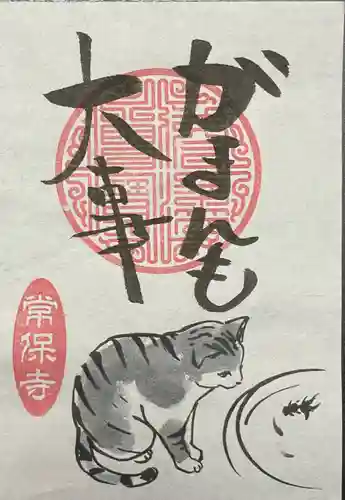 がまんも
大事
常保寺